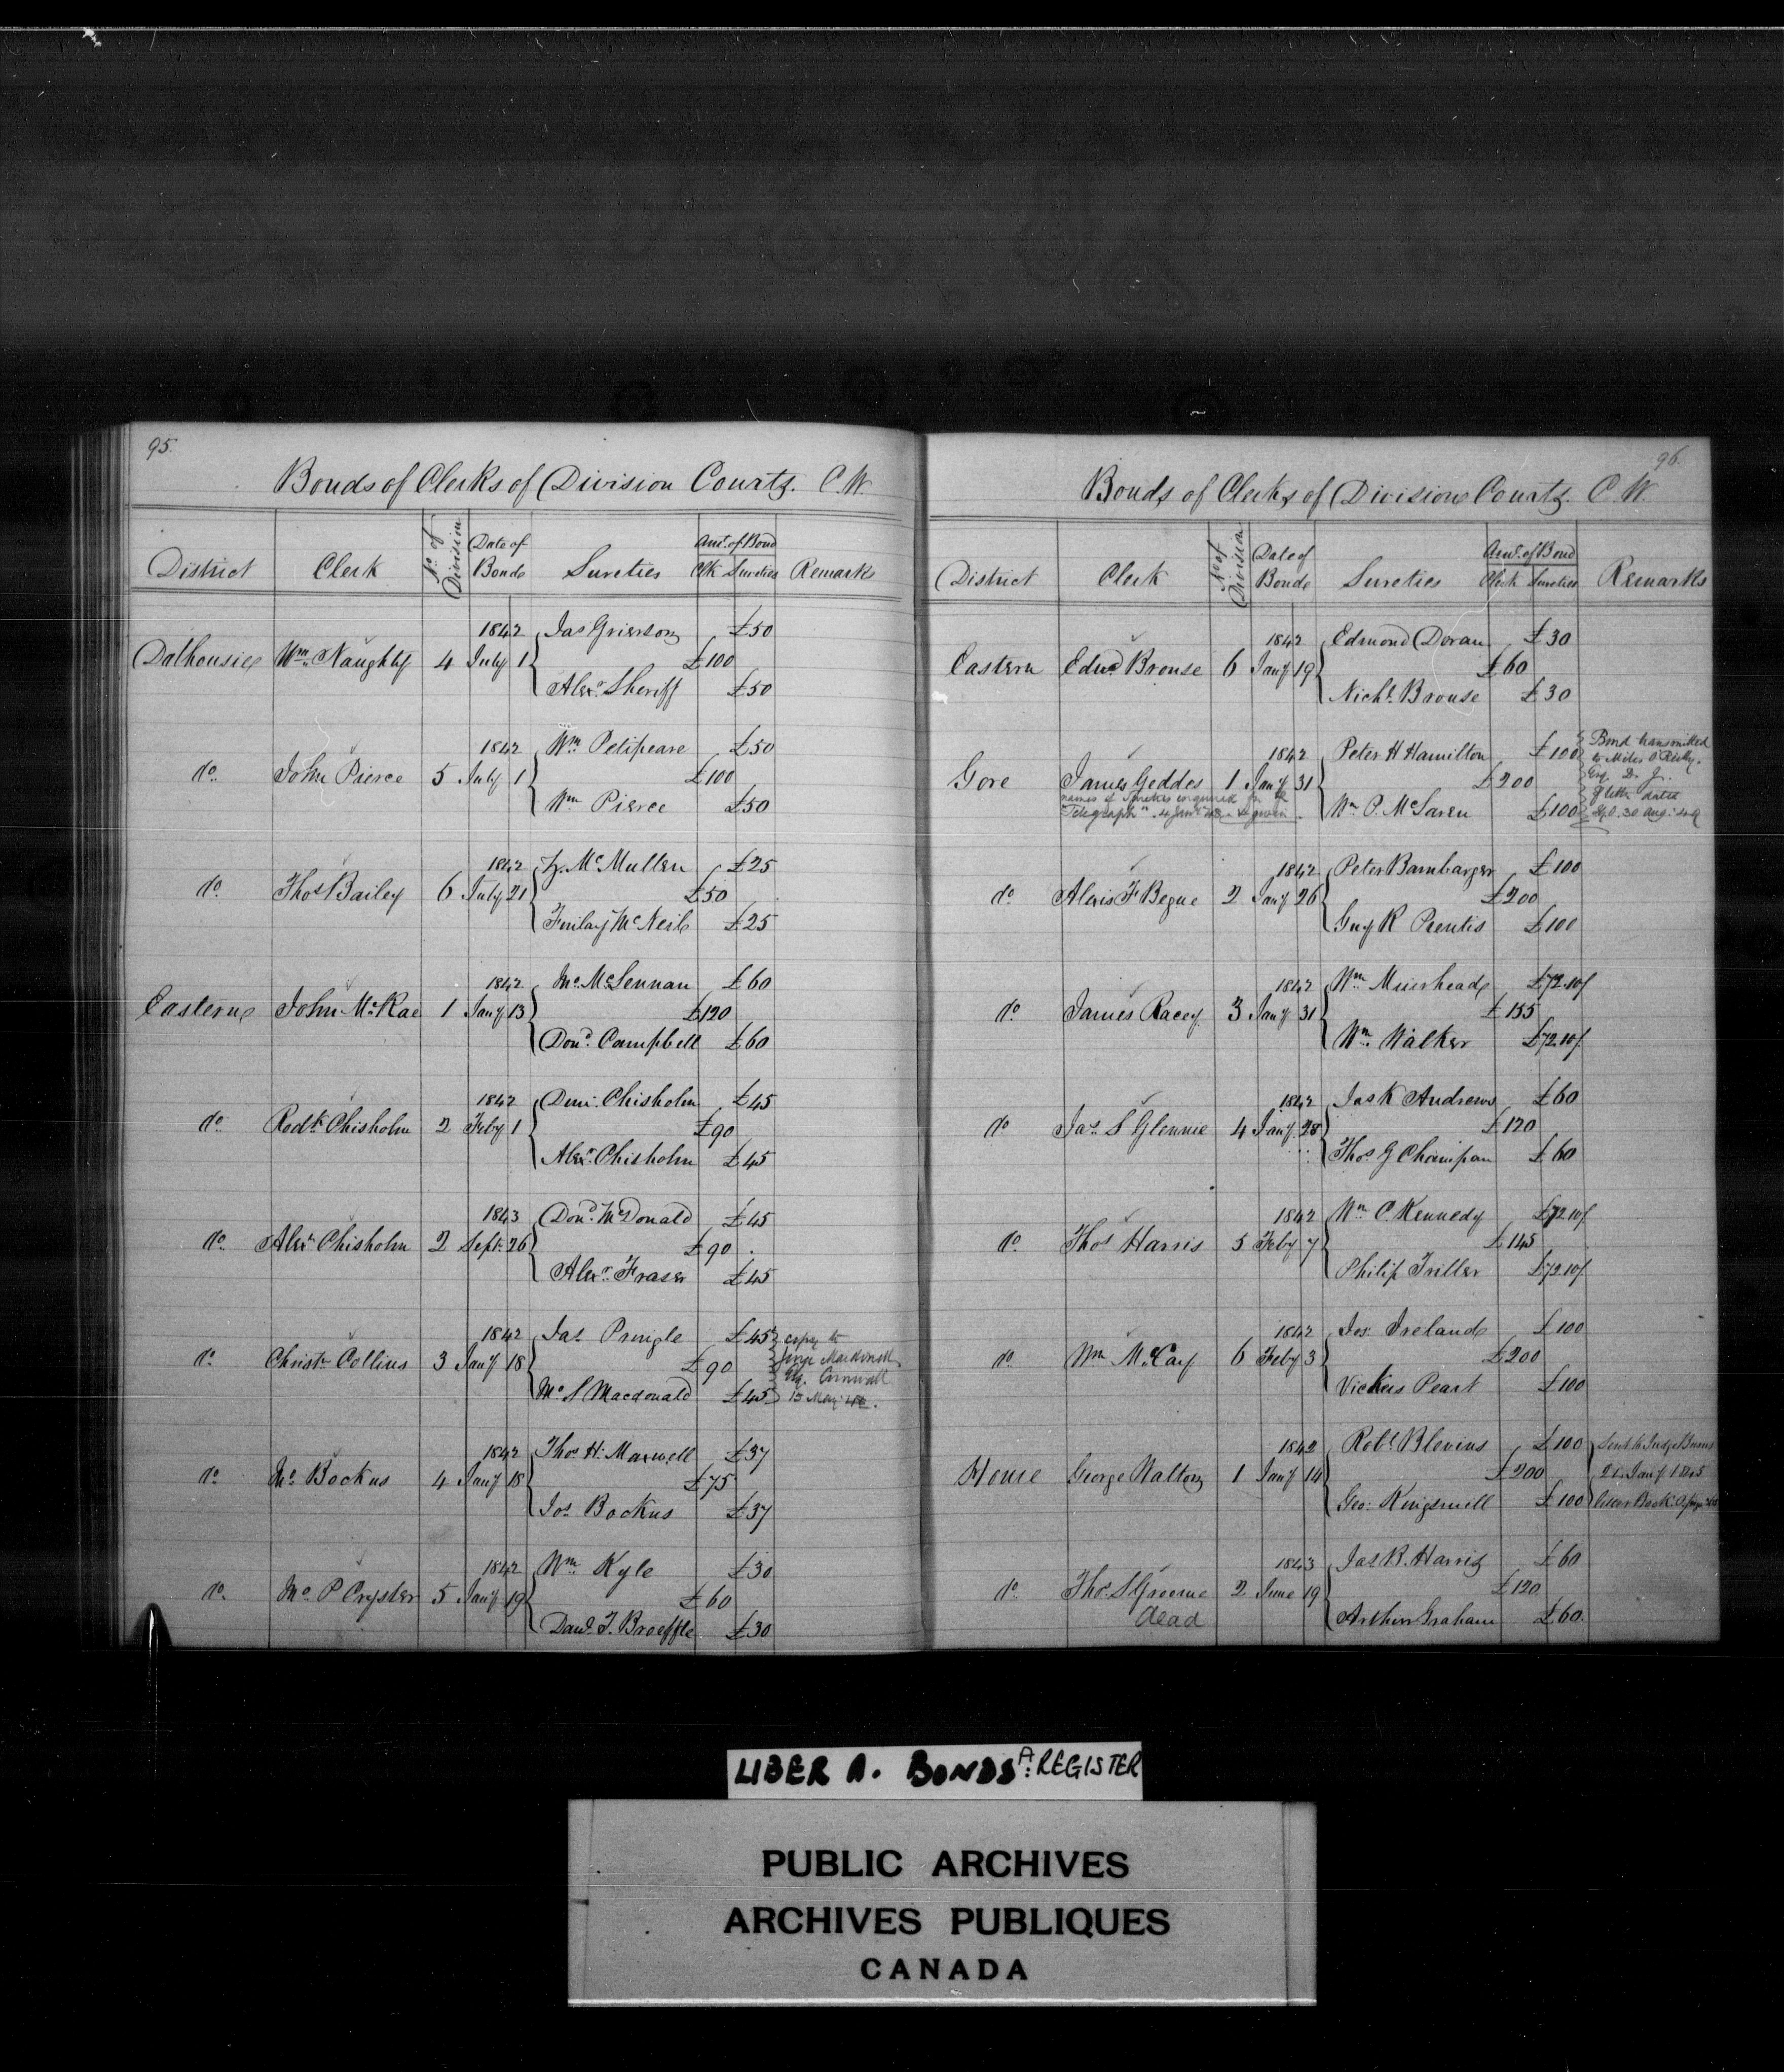 95.
Bonds of Clerks of Division Courts. C.W.
District Clerk No. of Division Date of Bond Sureties Amt. of Bond Clk Sureties Remarks
1842 Jas Grierson £50
Dalhousie Wm. Naughty 4 July 1 £100
Alexr. Sheriff £50
1842 Wm Petipeare £50
do. John Pierce 5 July 1 £100
Wm Pierce £50
1842 McMullen £25
do. Thos Bailey 6 July 21 £50
Finlay McNeil £25
1842 Jno. McLennan £60
Eastern John McRae 1 Jany 13 £120
Dond. Campbell £60
1842 Chisholm £45
do. Rodk. Chisholm 2 Feby 1 £90
Alexr. Chisholm £45
1843 Dond. McDonald £45
do. Alexr Chisholm 2 Sept. 26 £90
Alexr. Fraser £45
1842 Jas Pringle £45 copy to
do. Christr Collins 3 Jany 18 £90 Esq. Cornwall
Jno S Macdonald £45 13 May
1842 Thos H. Maxwell £37
do. Jno Bockus 4 Jany 18 £75
Jos Bockus £37
1842 Wm Kyle £30
do. Jno P Crysler 5 Jany 19 £60
Davd. T. Broeffle £30
96.
Bonds of Clerks of Division Courts. C.W.
District Clerk No of Division Date of Bond Sureties Amt. of Bond Clerk Sureties Remarks
1842 Edmond Doran £30
Eastern Edwd Brouse 6 Jany 19 £60
Nichs. Brouse £30
1842 Peter H Hamilton £100 Bond transmitted
Gore James Geddes 1 Jany 31 £200 to Miles O'Reilly
names of Sureties enquired for
Telegraph
Wm P. McLaren £100
1842 Peter Bambarger £100
do Alexis F Begue 2 Jany 26 £200
Guy R Prentis £100
1842 Wm Muirhead £72.10/
do. James Racey 3 Jany 31 £155
Wm. Walker £72.10/
1842 Jas K Andrews £60
do Jas. S Glennie 4 Jany 28 £120
Thos G Chomipan £60
1842 Wm C. Kennedy £72.10/
do. Thos Harris 5 Feby 7 £145
Philip Triller £72.10/
1842 Jos. Ireland £100
do. Wm McCay 6 Feby 3 £200
Vickers Peart £100
1842 Robt. Blevins £100 Sent to Judge Burns
Home George Walton 1 Jany 14 £200 21 Jany 1845
Geo. Kingsmill £100
1843 Jas R. Harris £60
do. Thos. S Greene 2 June 19 £120
dead Arthur Graham £60
LIBER A. BONDS A. REGISTER
PUBLIC ARCHIVES
ARCHIVES PUBLIQUES
CANADA